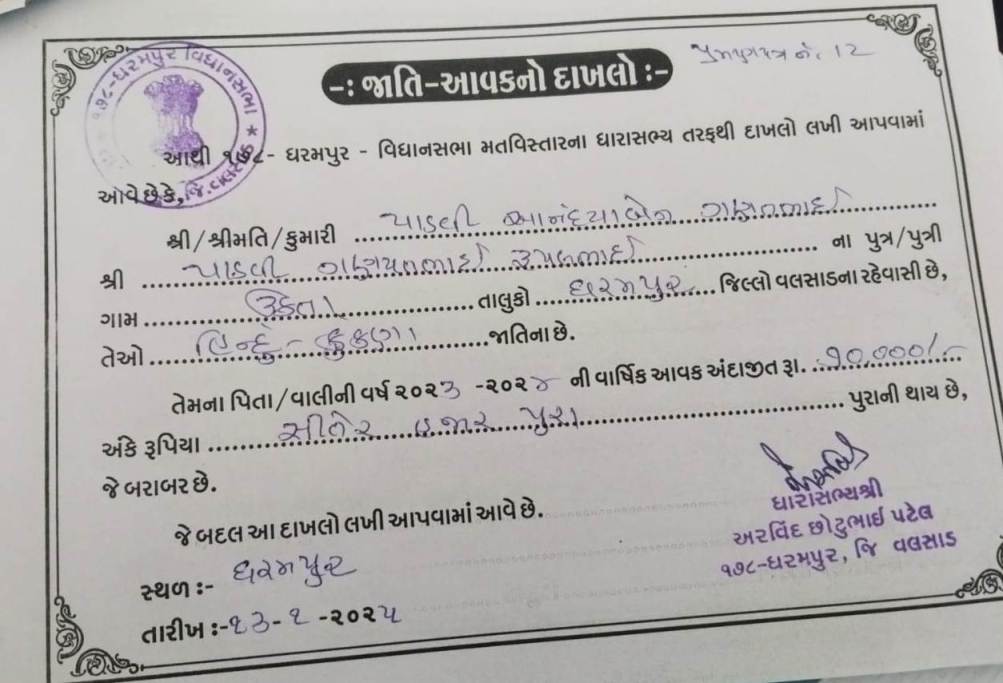 પ્રમાણપત્ર નં. 12
-: જાતિ-આવકનો દાખલો :-
૧૭૮-ધરમપુર વિધાનસભા * જિ.વલસાડ *
આથી ૧૭૮- ધરમપુર - વિધાનસભા મતવિસ્તારના ધારાસભ્ય તરફથી દાખલો લખી આપવામાં
આવે છે કે,
શ્રી/શ્રીમતિ/કુમારી પાડવી ગણપતભાઈ
શ્રી પાડવી ગણપતભાઈ ના પુત્ર/પુત્રી
ગામ તાલુકો ધરમપુર જિલ્લો વલસાડના રહેવાસી છે,
તેઓ હિન્દુ - કુકણા જાતિના છે.
તેમના પિતા/વાલીની વર્ષ ૨૦૨૩ -૨૦૨૪ ની વાર્ષિક આવક અંદાજીત રૂા. ૭૦,૦૦૦/-
અંકે રૂપિયા સીતેર હજાર પુરા પુરાની થાય છે,
જે બરાબર છે.
જે બદલ આ દાખલો લખી આપવામાં આવે છે.
સ્થળ :- ધરમપુર
તારીખ :-૧૩-૧ -૨૦૨૫
ધારાસભ્યશ્રી
અરવિંદ છોટુભાઇ પટેલ
૧૭૮-ધરમપુર, જિ વલસાડ